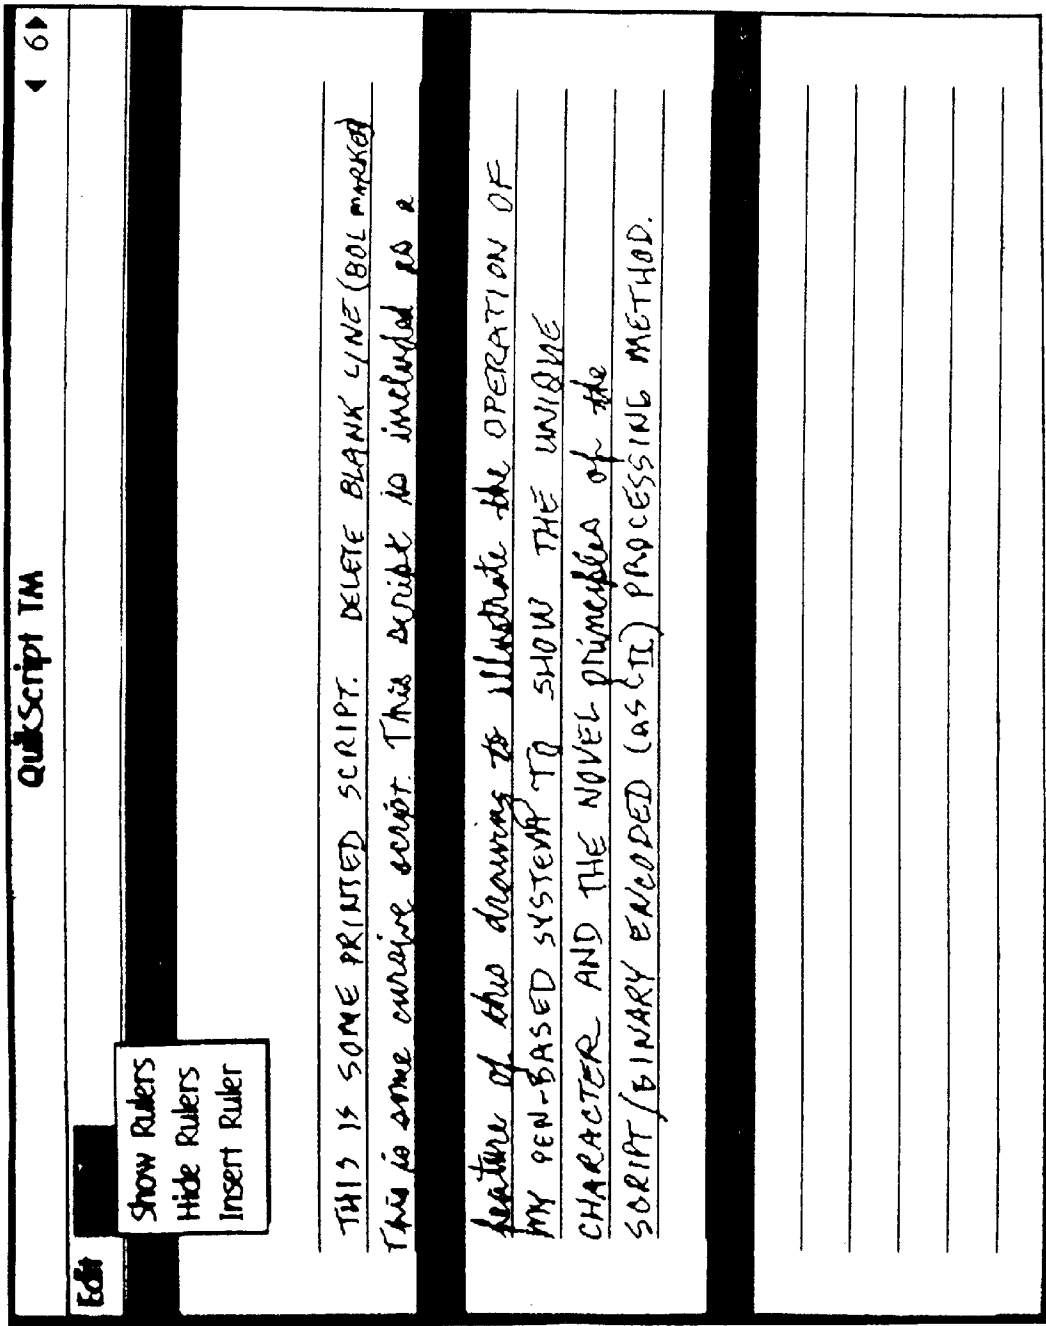 QuikScript TM
◄ 6►
Edit
Show Rulers
Hide Rulers
Insert Ruler
THIS IS SOME PRINTED SCRIPT. DELETE BLANK LINE (BOL MARKER)
This is some cursive script. This script is included as a
feature of this drawing to illustrate the OPERATION OF
MY PEN-BASED SYSTEM TO SHOW THE UNIQUE
CHARACTER AND THE NOVEL principles of the
SCRIPT/BINARY ENCODED (ASCII) PROCESSING METHOD.